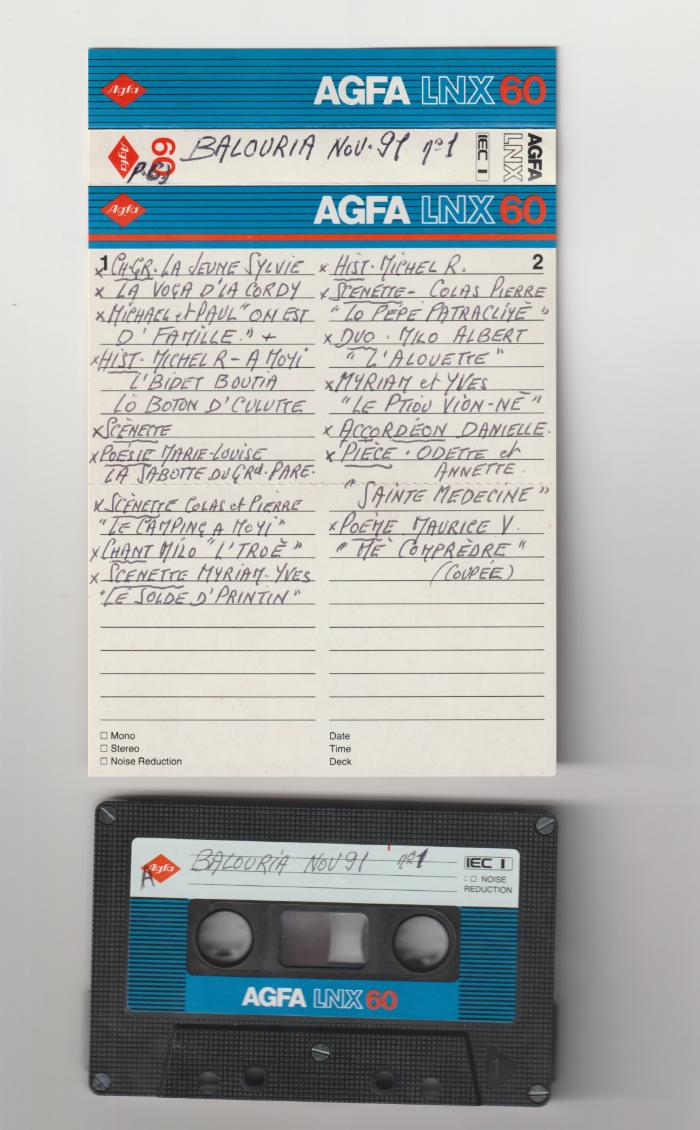 Agfa AGFA LNX 60
Agfa 60 P.63 BALOURIA NOV. 91 nº1 IEC I AGFA LNX
Agfa AGFA LNX 60
1
x CH.GR. LA JEUNE SYLVIE
x LA VOGA D'LA CORDY
x MICHAEL et PAUL "ON EST
D' FAMILLE." +
x HIST. MICHEL R - A MOYI
L'BIDET BOUTIA
LO BOTON D'CULUTTE
x SCÈNETTE
x POÉSIE MARIE-LOUISE
LA SABOTTE DU GRd. PARE.
x SCÈNETTE COLAS et PIERRE
"LE CAMPING A MOYI"
x CHANT MILO "L'TROÈ"
x SCENETTE MYRIAM-YVES
"LE SOLDE D'PRINTIN"
2
x HIST. MICHEL R.
x SCENETTE - COLAS PIERRE
"LO PÉPÉ PATRACLIYÈ"
x DUO. MILO ALBERT
"L'ALOUETTE"
x MYRIAM et YVES
"LE PTIOU VION-NÈ"
x ACCORDÉON DANIELLE.
x PIÈCE. ODETTE et
ANNETTE.
"SAINTE MEDECINE"
x POÈME MAURICE V.
"ME COMPRÈDRE"
(COUPÉE)
Mono
Stereo
Noise Reduction
Date
Time
Deck
Agfa A BALOURIA NOV 91 nº1 IEC I
: NOISE
REDUCTION
AGFA LNX 60
1